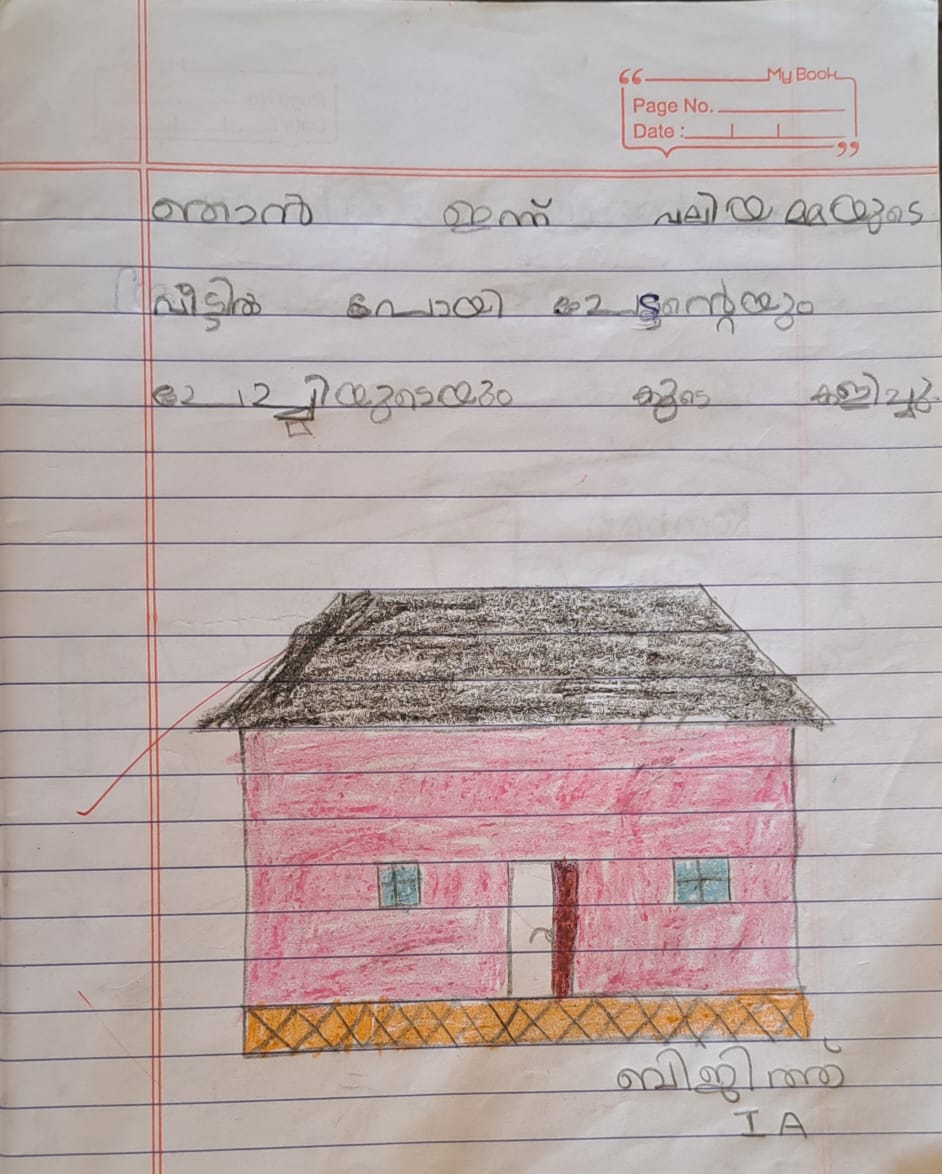 My Book
Page No.
Date :
ഞാൻ ഇന്ന് വലിയ മ്മയുടെ
വീട്ടിൽ പോയി ചേട്ടന്റെയും
ചേച്ചിയുടെയും കൂടെ കളിച്ചു.
ബിജിത്ത്
I A